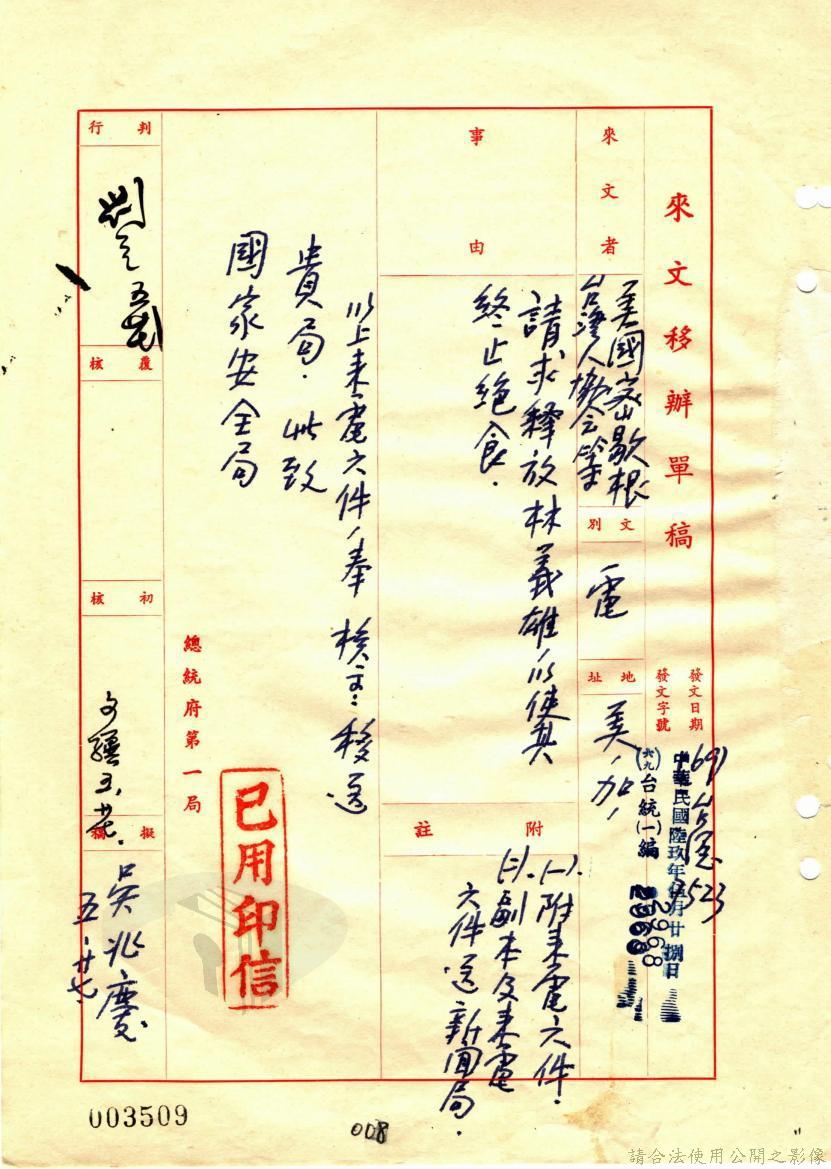 來文移辦單稿
發文日期
中華民國陸玖年伍月廿捌日
發文字號
(六九)台統(一)編
2968
來文者
美國密歇根
台灣人協會等
文別
電
地址
美、加、
事由
請求釋放林義雄以使其
終止絕食.
附註
(一).附來電六件.
(二).副本及來電
六件送新聞局.
以上來電六件、奉 核示:移送
貴局. 此致
國家安全局
總統府第一局
已用印信
判行
覆核
初核
擬稿
吳兆慶
五、廿七
003509
008
請合法使用公開之影像